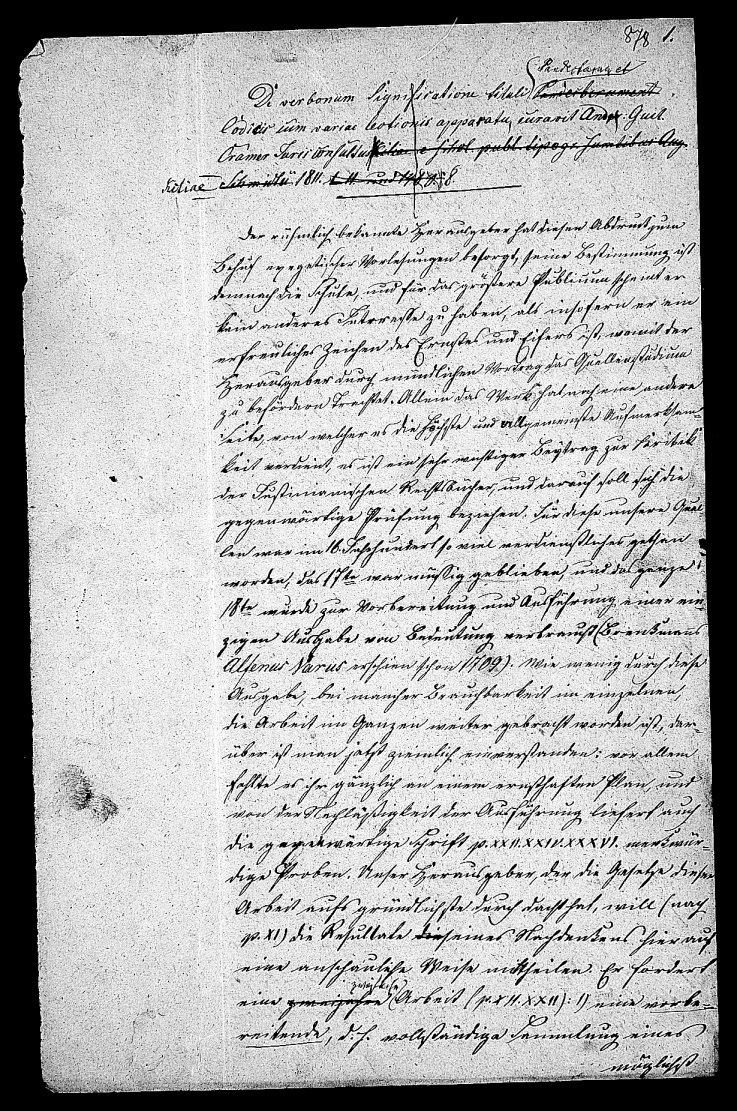 878 1.
Pandectarum et
De verborum significatione tituli
Codicis cum variae lectionis apparatu, curavit Andr. Guil.
Cramer Juris consultus publ. typogr. Aug.
Kiliae Schmidtii 1811. 8
Der rühmlich bekannte Herausgeber hat diesen Abdruck zum
Behuf exegetischer Vorlesungen besorgt, seine Bestimmung ist
demnach die Schule, und für das größere Publicum scheint er
kein anderes Interesse zu haben, als insofern er ein
erfreuliches Zeichen des Ernstes und Eifers ist, womit der
Herausgeber durch mündlichen Vortrag das Quellenstudium
zu befördern trachtet. Allein das Werk hat noch eine andere
Seite, von welcher es die höchste und allgemeinste Aufmerksam-
keit verdient, es ist ein sehr wichtiger Beytrag zur Kritik
der Justinianischen Rechtsbücher, und darauf soll sich die
gegenwärtige Prüfung beziehen. Für diese unsere Quel-
len war im 16. Jahrhundert so viel verdienstliches gethan
worden, das 17te war müssig geblieben, und das ganze
18te wurde zur Vorbereitung und Ausführung einer ein-
zigen Ausgabe von Bedeutung verbraucht (Brenkmanns
Alfenus Varus erschien schon 1709). Wie wenig durch diese
Ausgabe, bei mancher Brauchbarkeit im einzelnen,
die Arbeit im Ganzen weiter gebracht worden ist, dar-
über ist man jetzt ziemlich einverstanden: vor allem
fehlte es ihr gänzlich an einem ernsthaften Plan, und
von der Nachläßigkeit der Ausführung liefert auch
die gegenwärtige Schrift p. XXII. XXIV. XXXVI. merkwür-
dige Proben. Unser Herausgeber, der die Gesetze dieser
Arbeit aufs gründlichste durchdacht hat, will (nach
p. XI) die Resultate seines Nachdenkens hier auf
eine anschauliche Weise mittheilen. Er fordert
eine zwiefache Arbeit (p. XII. XXII): 1) eine vorbe-
reitende, d. h. vollständige Sammlung eines
möglichst